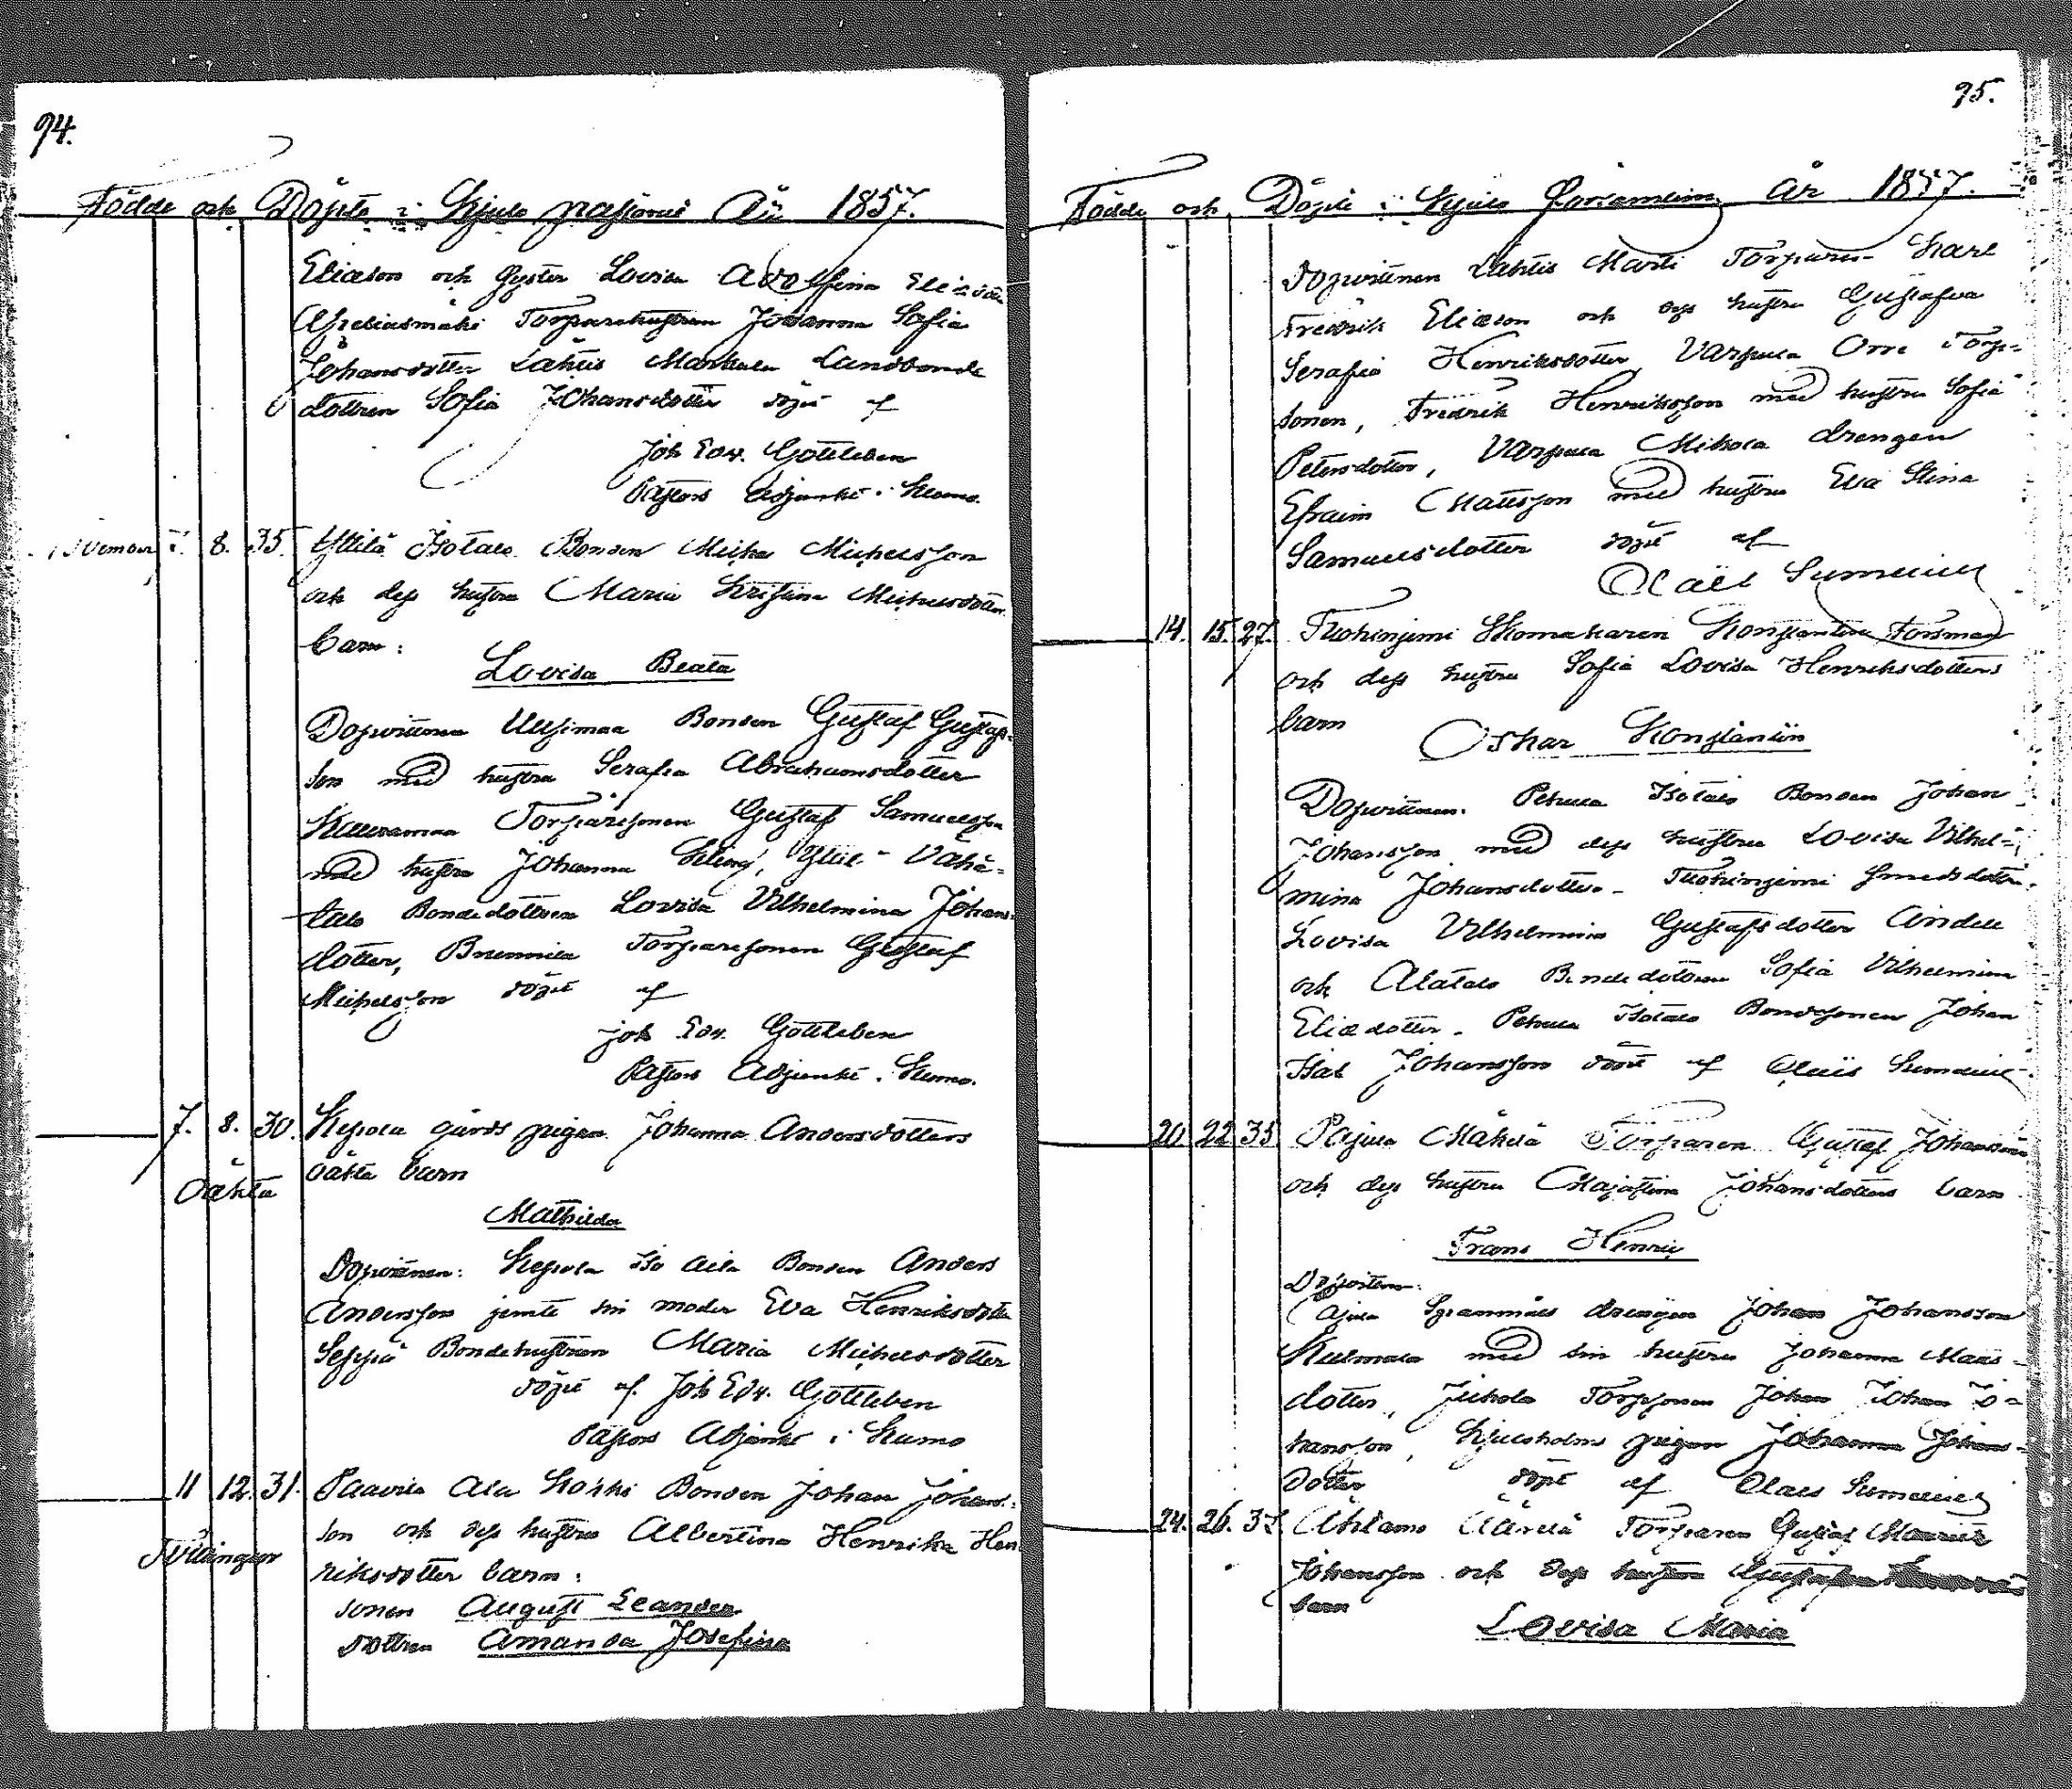 94.
Födde och Döpte i Kjulo År 1857.
Eliason och Syster Lovisa Adolfina
Torparehustrun Johanna Sofia
Johansdotter Lahtis Landbonde
dottren Sofia Johansdotter döpt af
Joh Edv. Gottleben
Pastors Adjunkt i Kumo.
8. 35. Yttilä Isotalo Bonden Michel Michelsson
och dess hustru Maria Kristina Michelsdotter
barn:
Lovisa Beata
Dopvittnen Uusimaa Bonden Gustaf Gustafs-
son med hustru Serafia Abrahamsdotter
Torparesonen Gustaf Samuelsson
med hustru Johanna Vähä-
talo Bondedottren Lovisa Vilhelmina Johans-
dotter, Torparesonen Gustaf
Michelsson döpt af
Joh. Edv. Gottleben
Pastors Adjunkt i Kumo.
7. 8. 30. Kepola gårds pigan Johanna Andersdotters
Oäkta oäkta barn
Mathilda
Dopvittnen: Kepola Iso Bonden Anders
Andersson jemte sin moder Eva Henriksdotter
Seppä Bondehustrun Maria Michelsdotter
döpt af Joh Edv. Gottleben
Pastors Adjunkt i Kumo
11 12. 31. Paavila Ala Bonden Johan Johans-
son och dess hustru Albertina Henrika Hen-
Tvillingar riksdotter barn:
sonen August Leander
dottren Amanda Josefina
95.
Födde och Döpte i Kjulo Församling År 1857.
Dopvittnen Lahtis Martti Torparen Karl
Fredrik Eliason och dess hustru Gustafva
Serafia Henriksdotter, Varpula Orre Torp-
sonen, Fredrik Henriksson med hustru Sofia
Petersdotter, Varpula Mikola drengen
Efraim Mattsson med hustru Eva Stina
Samuelsdotter döpt af
14. 15. 27. Skomakaren Konstantin Forsman
och dess hustru Sofia Lovisa Henriksdotters
barn
Oskar Konstantin
Dopvittnen. Isotalo Bonden Johan
Johansson med dess hustru Lovisa Vilhel-
mina Johansdotter - Smedsdotter
Lovisa Vilhelmina Gustafsdotter
och Alatalo Bondedottren Sofia Vilhelmina
Eliedotter - Isotalo Bondesonen Johan
Isak Johansson döpt af
20 22 35 Torparen Gustaf Johansson
och dess hustru Majastina Johansdotters barn
Frans Henric
Dopvittnen:
drengen Johan Johansson
med sin hustru Johanna Mats-
dotter, Torpsonen Johan Johan Jo-
hansson, Kjuloholms pigan Johanna Johans-
dotter döpt af
24. 26. Torparen Gustaf
Johansson och dess hustru
barn
Lovisa Maria